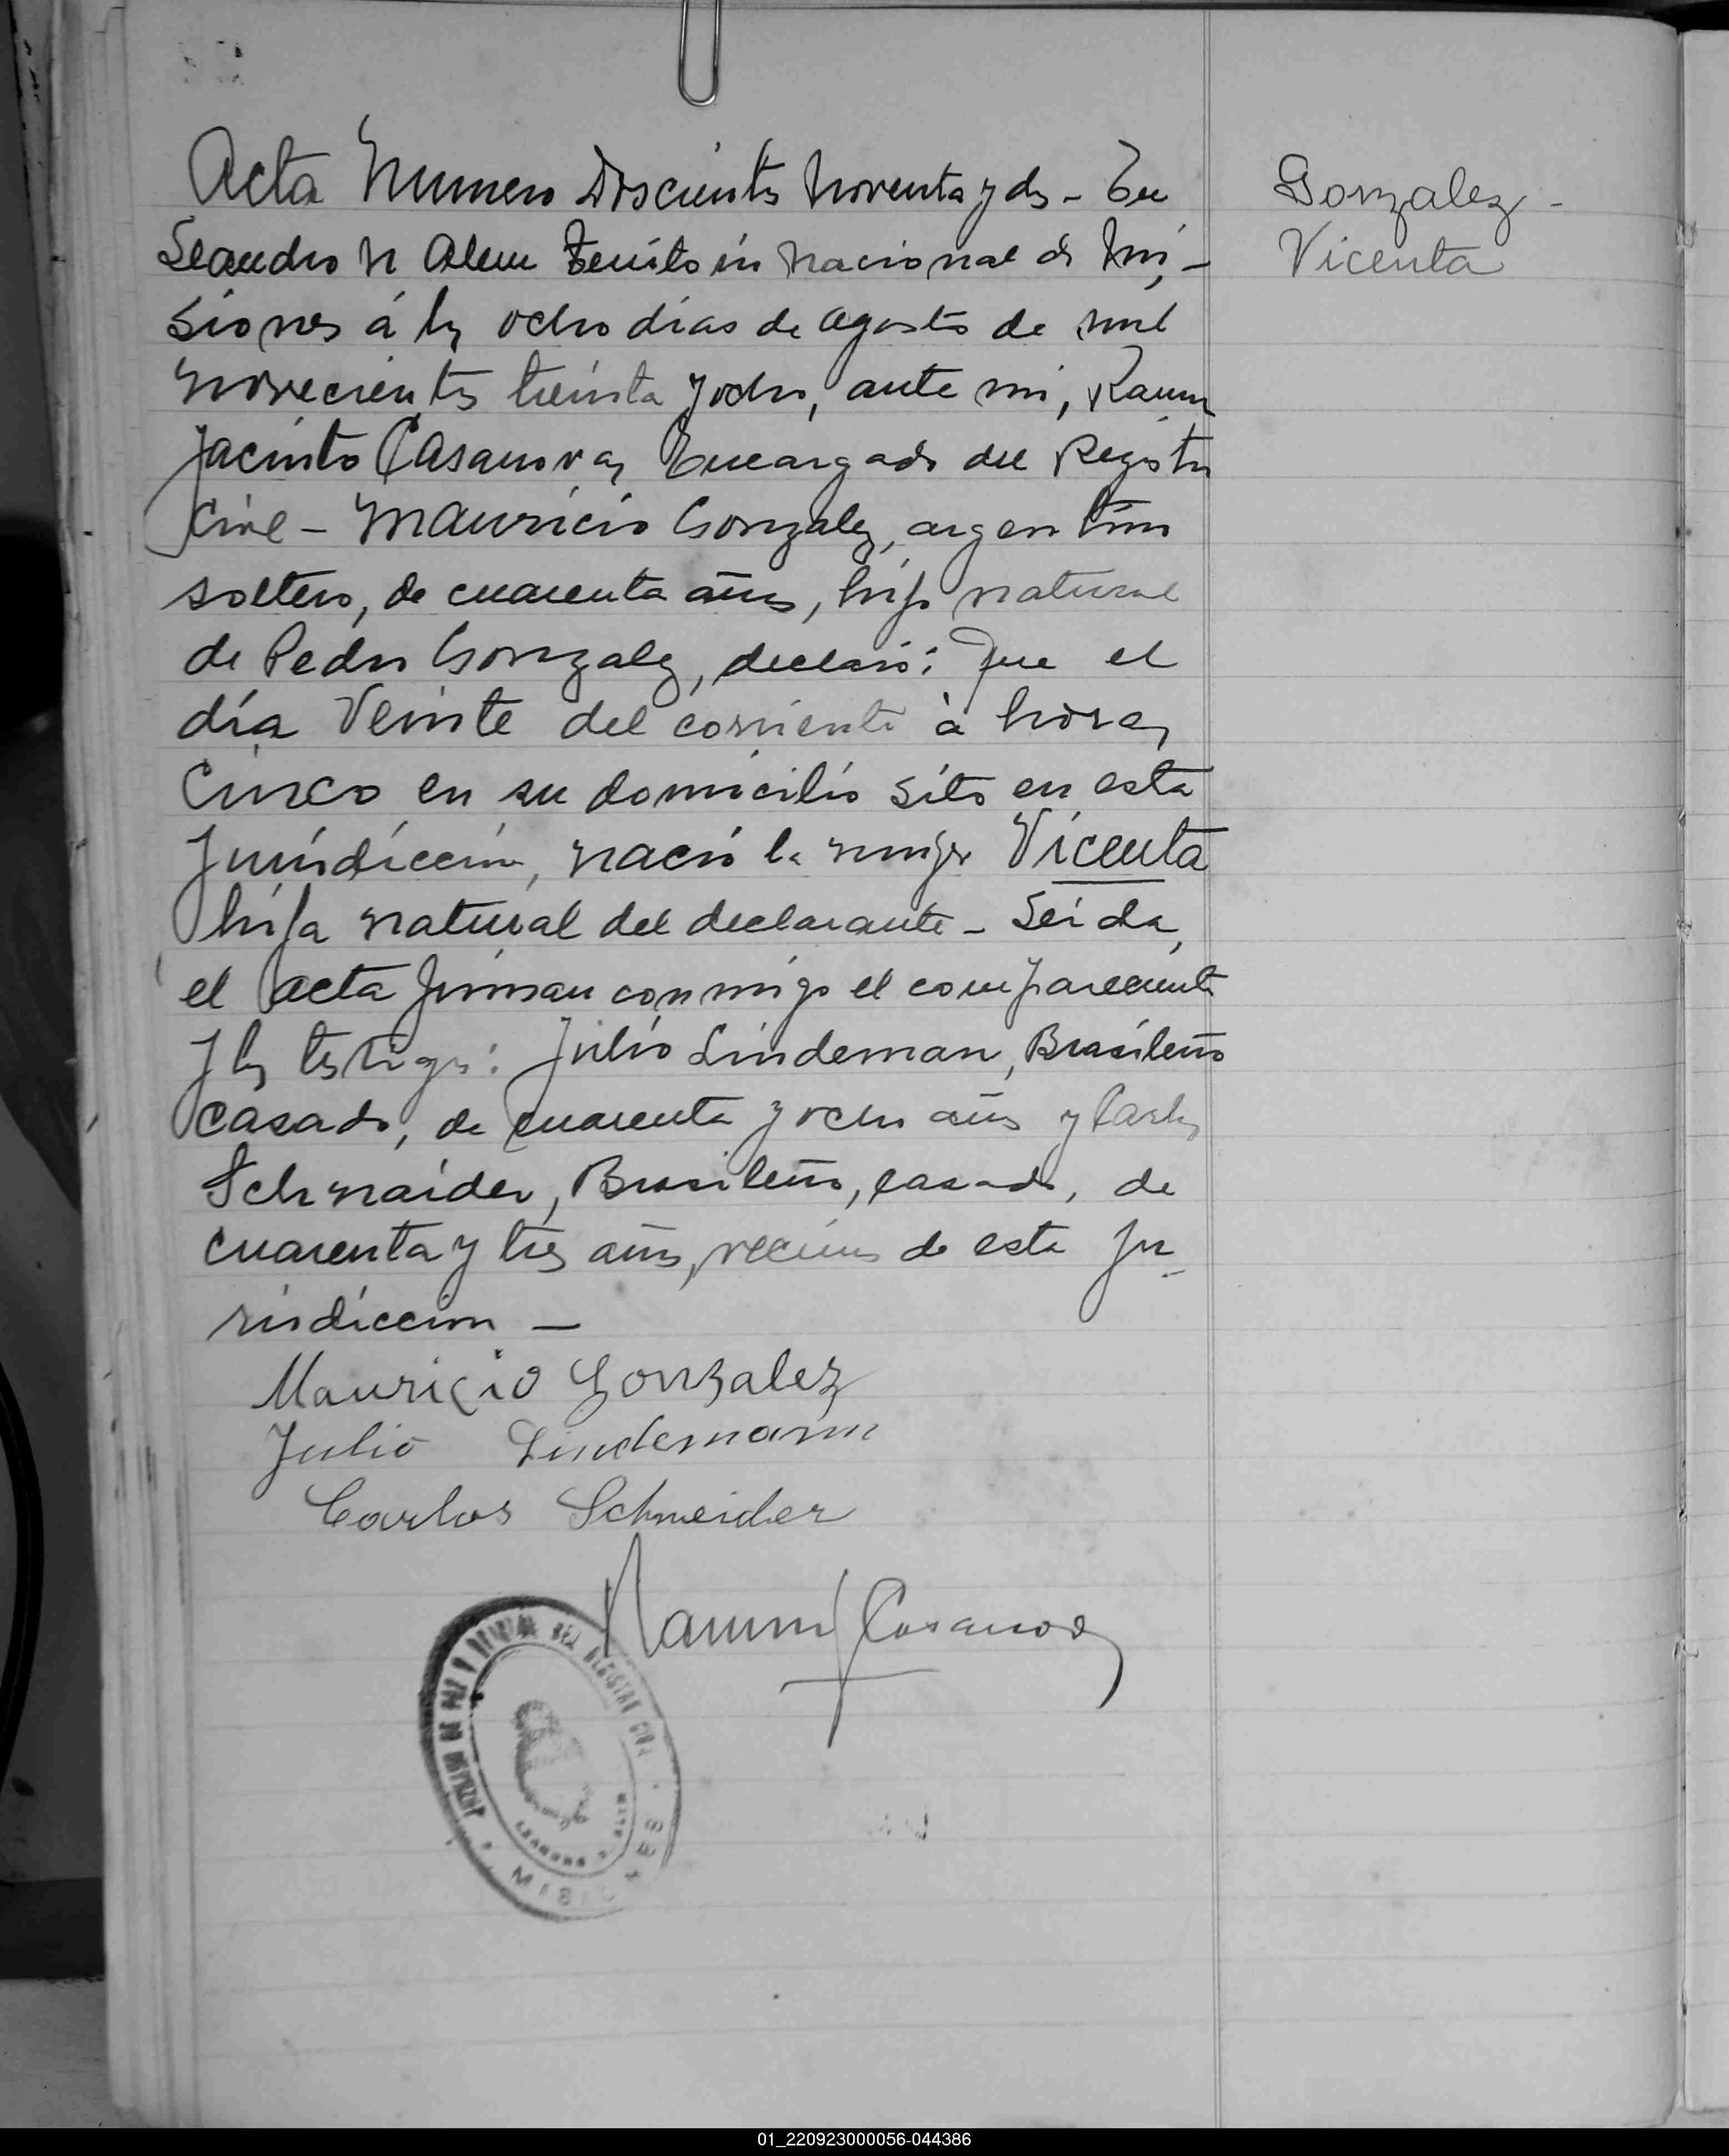 Acta Numero Doscientos Noventa y dos - En
Leandro N Alem Territorio Nacional de Mi,-
siones á los ocho días de Agosto de mil
novecientos treinta y ocho, ante mi, Ramon
Jacinto Casanova, Encargado del Registro
Civil - Mauricio Gonzalez, argentino
soltero, de cuarenta años, hijo natural
de Pedro Gonzalez, declaró: Que el
día Veinte del corriente à horas
Cinco en su domicilio sito en esta
Jurisdicción, nació la mujer Vicenta
hija natural del declarante - Leida,
el acta firman conmigo el compareciente
y los testigos: Julio Lindeman, Brasileño
casado, de cuarenta y ocho años y Carlos
Schnaider, Brasileño, casado, de
cuarenta y tres años, vecinos de esta Ju-
risdiccion -
Gonzalez -
Vicenta
Mauricio Gonzalez
Julio Lindemann
Carlos Schneider
Ramon J Casanova
JUZGADO DE PAZ Y OFICINA DEL REGISTRO CIVIL
LEANDRO N. ALEM
MISIONES
01_220923000056-044386